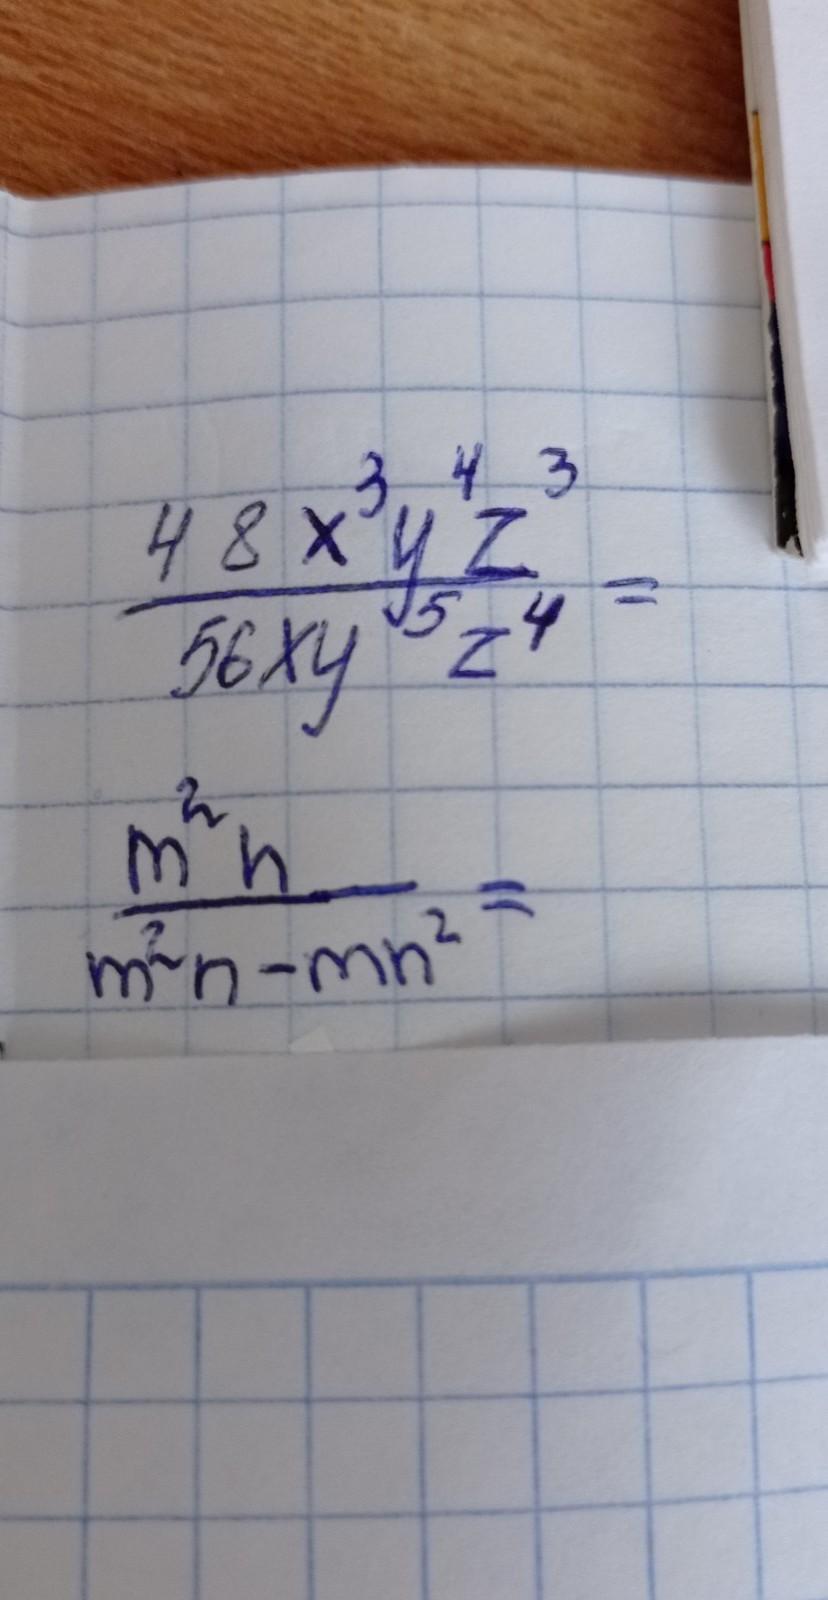 48x³y⁴z³
56xy⁵z⁴ =
m²n
m²n-mn² =